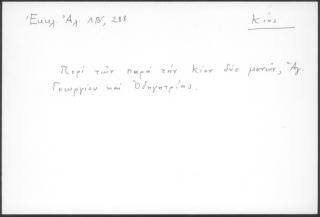 Ἐκκλ. Ἀλ. ΛΒ', 288
Κίος
Περὶ τῶν παρὰ τὴν Κίον δύο μονῶν, Ἁγ.
Γεωργίου καὶ Ὁδηγητρίας.